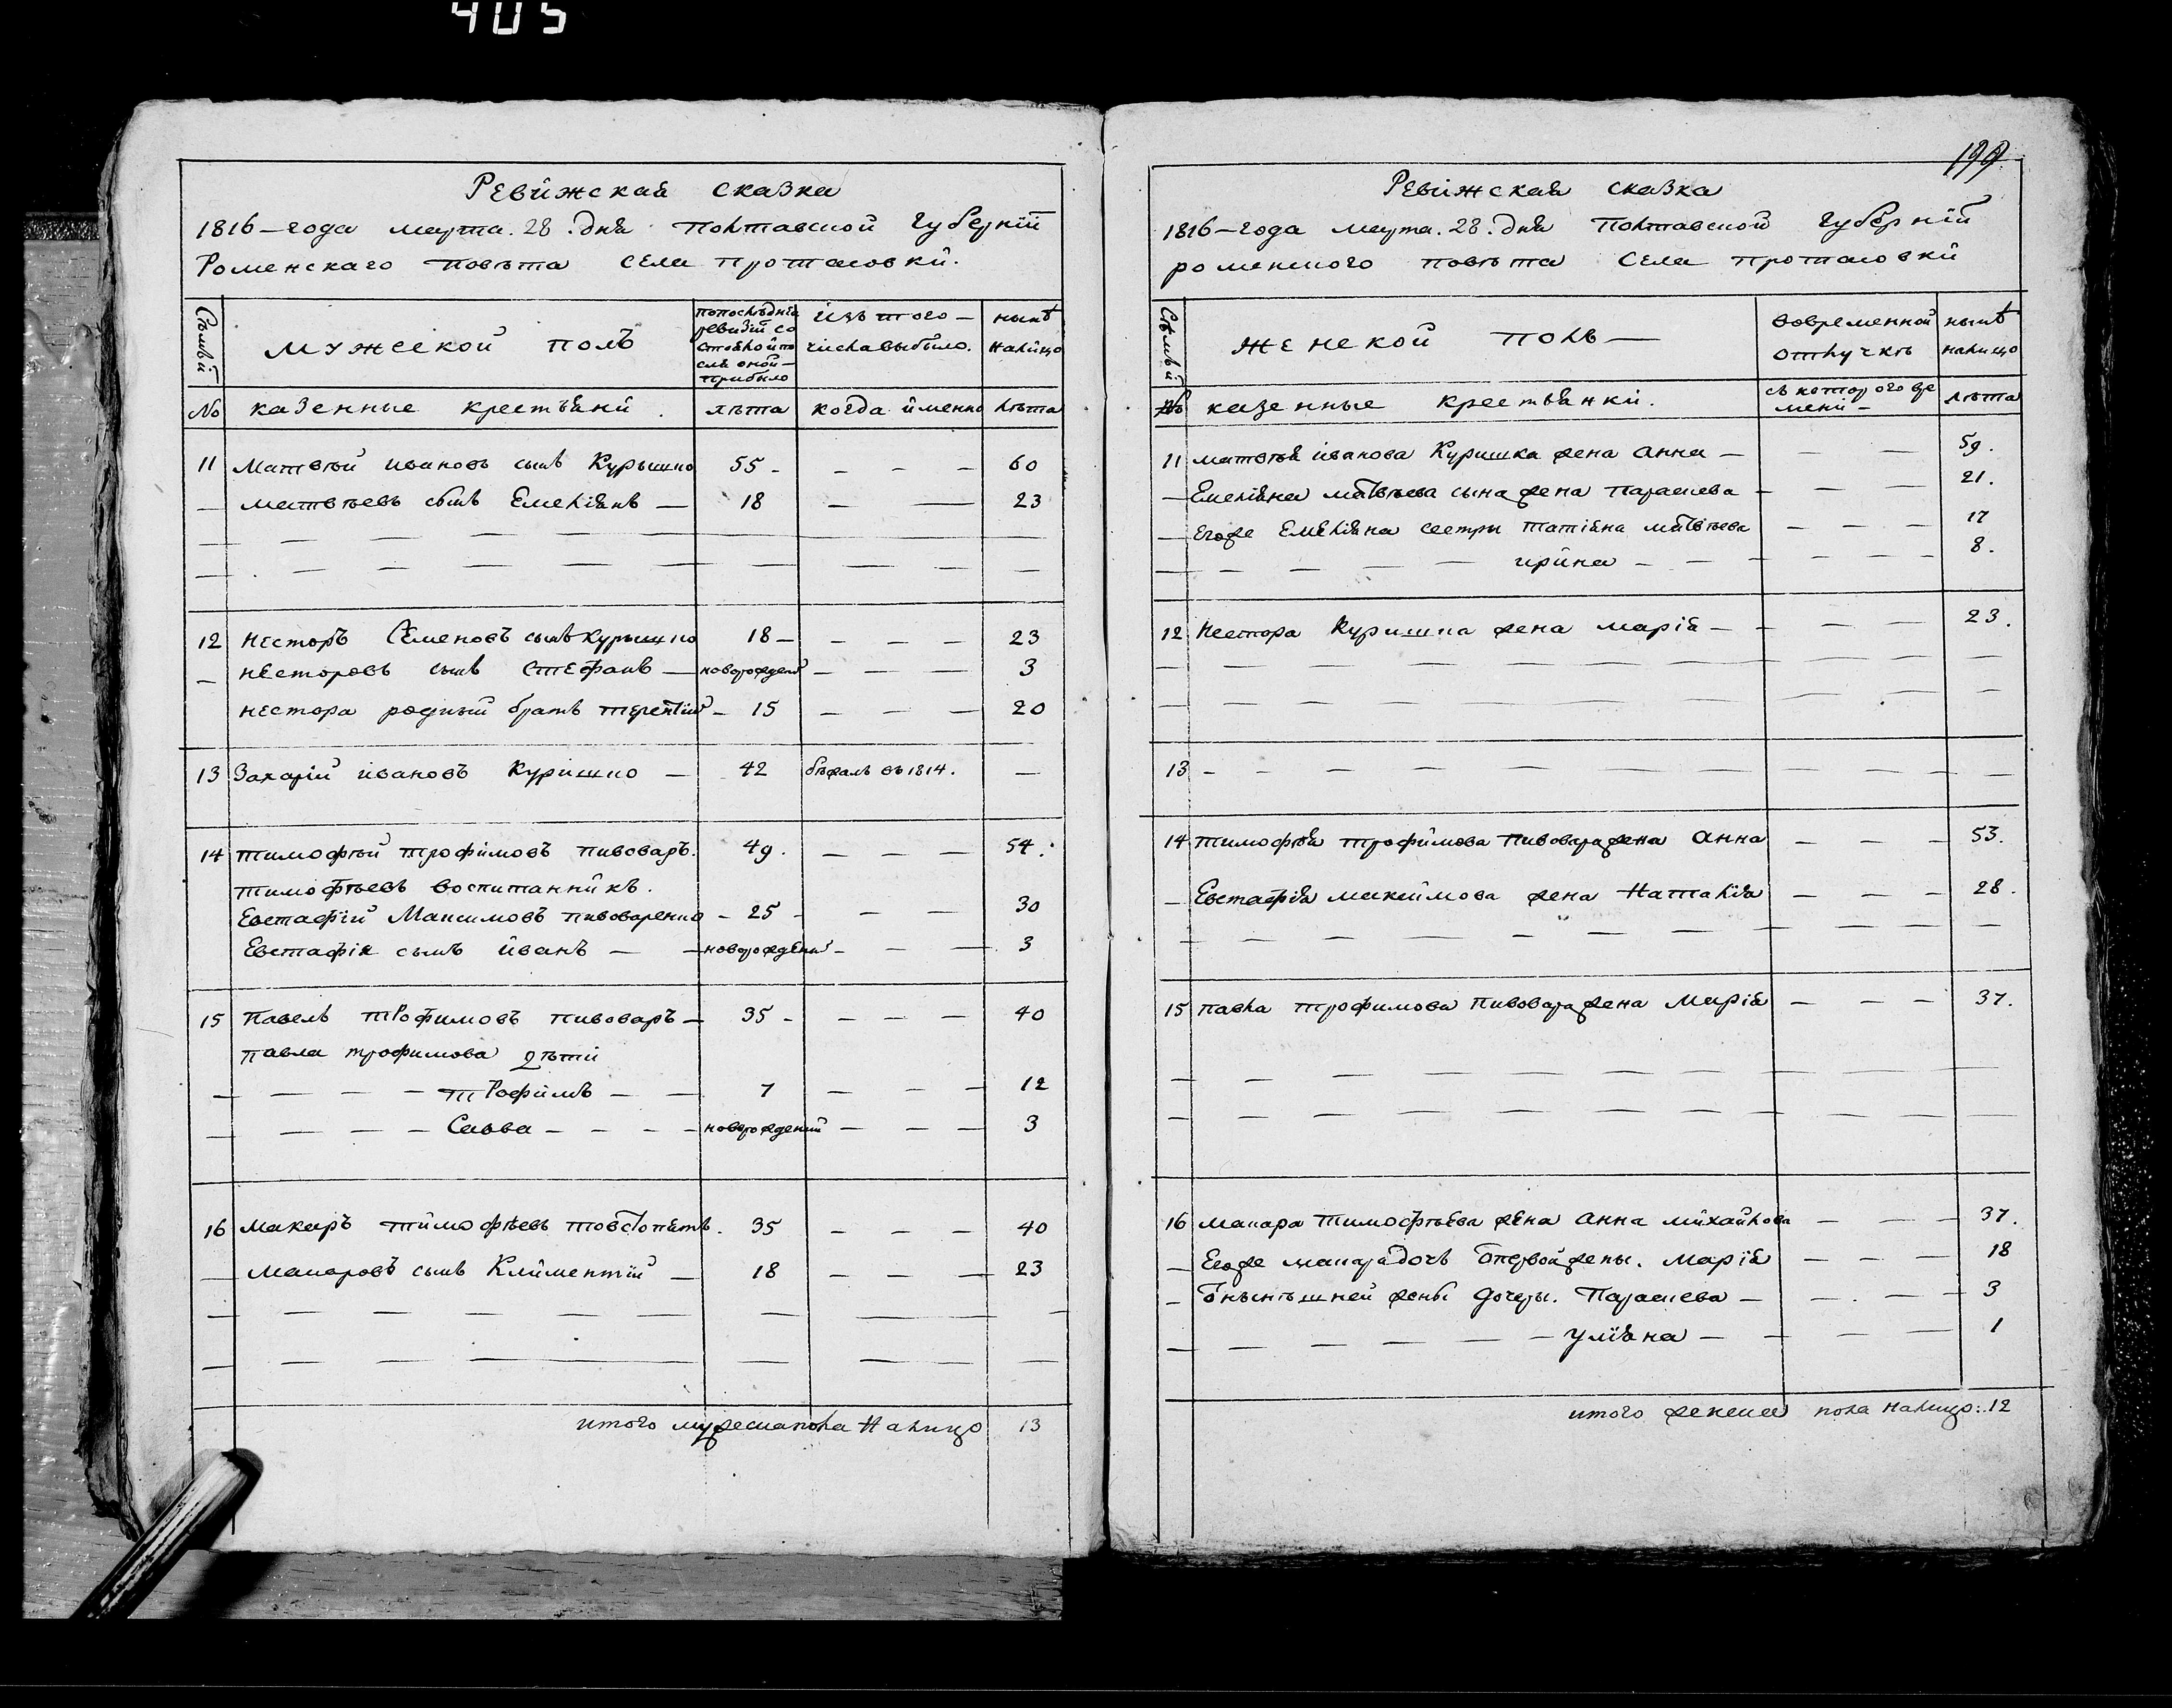 405
199
Ревижская сказка
1816-года марта. 28. дня Полтавской Губерніи
Роменскаго повѣта Села протасовки.
Семьи
мужеской полъ
попослѣдней ревизіи состояло и после оной прибыло
изъ того числа выбыло.
нынѣ налицо
№ казенные крестьяни. лѣта когда именно лѣта
11 Матвѣй ивановъ сынъ Курышко 55 - — — — 60
— матвѣевъ сынъ Емеліянъ — 18 — — 23
12 несторъ Семеновъ сынъ курышко 18 — — — — 23
— несторовъ сынъ стефанъ — новорожденй — — — 3
нестора родный братъ терентій — 15 — — — 20
13 Захарій ивановъ Куришко — 42 бежалъ въ 1814. —
14 тимофѣй трофимовъ пивоваръ. 49. — — — 54.
тимофѣевъ воспитанникъ.
Евстафій Максимовъ пивоваренко - 25 - — — 30
Евстафія сынъ иванъ — — новорожденй — — — 3
15 Павелъ трофимовъ пивоваръ — 35 - — — — 40
павла трофимова дѣти
— — — — трофимъ — — 7 — — — 12
— — — — Савва — — — — новорожденй — — — 3
16 макаръ тимофѣевъ товстопятъ. 35 — — — 40
— макаровъ сынъ Климентій — 18 — — — 23
итого мужеска пола налицо 13
Ревижская сказка
1816-года марта. 28. дня Полтавской Губерніи
роменского повѣта Села протасовки
Семьи
женской полъ —
во временной отлучкѣ
нынѣ налицо
№ казенные крестьянки. съ которого времени — лѣта
11 матвѣя іванова Куришка жена анна — — — 59.
— Емеліяна матвѣева сына жена параскева — — — — 21.
— Егоже Емеліяна сестры татіяна матвѣева — — — 17
— — — — — ирина — — — — — — 8.
12 Нестора Куришка жена марія — — — — — 23.
13 — — — — — — — — — — — —
14 тимофѣя трофимова пивовара жена анна — — — 53.
— Евстафія максимова жена Наталія — — — 28.
15 павла трофимова пивовара жена Марія — — — 37.
16 макара тимофѣева жена анна михайлова — — — 37.
— Егоже макара дочь отпервой жены. Марія — — — 18
— Отнынѣшней жены дочеры. Параскева — — . — — 3
— — — — — — уліяна — — — — 1
итого женска пола налицо: 12